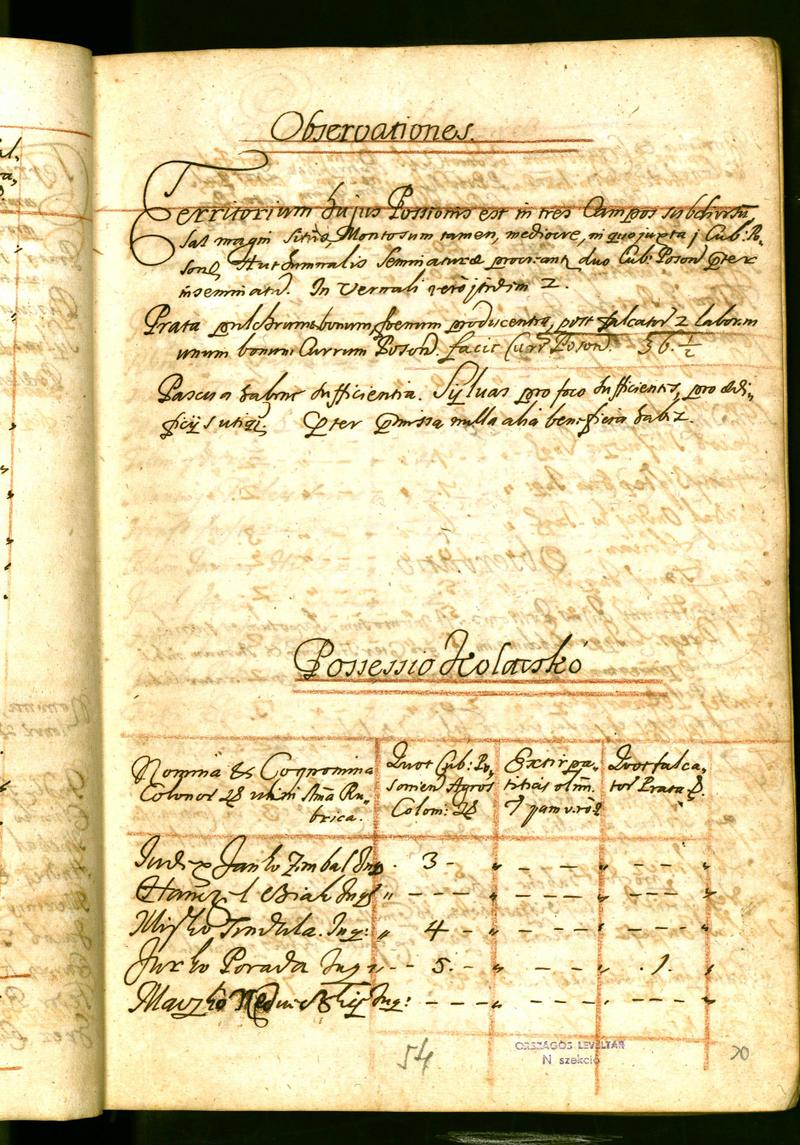 Observationes.
Territorium hujus Possionis est in tres Campos subdivisu
sat magni situs, Montosum tamen, mediocre, in quo juxta j Cub: Po-
son, Authumnalis Seminaturæ duo Cub: Poson
In Vernali vero itidem 2.
Prata pulchrum bonum foenum producentia, post falcator 2 laborum
unum bonum Currum Poson. facit Curr Poson. 36. 1/2
Pascua habent sufficientia. Sylvas pro foco sufficientes, pro ædi-
ficijs uti qz. Præter præmissa nulla alia beneficia habt.
Possessio Kolacskó
Nomina & Cognomina
Colonor
brica.
Quot Cub: Po-
sonien Agros
Colon:
Extirpa-
titias olim.
7 jam v.ro
Quot falca-
tor Prata
Judex Janko Zimbal Inq. 3
Inq
Mißko Tindula. Inq: 4
Jurko Porada Inq 5. 1.
Maczko Inq:
54
ORSZÁGOS LEVÉLTÁR
N szekció
20